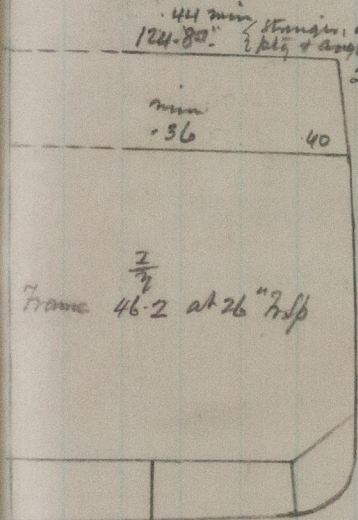 .44 min { stringer,
124.80" { pltg & ang
min
.36 40
I
y
Frame 46.2 at 26"